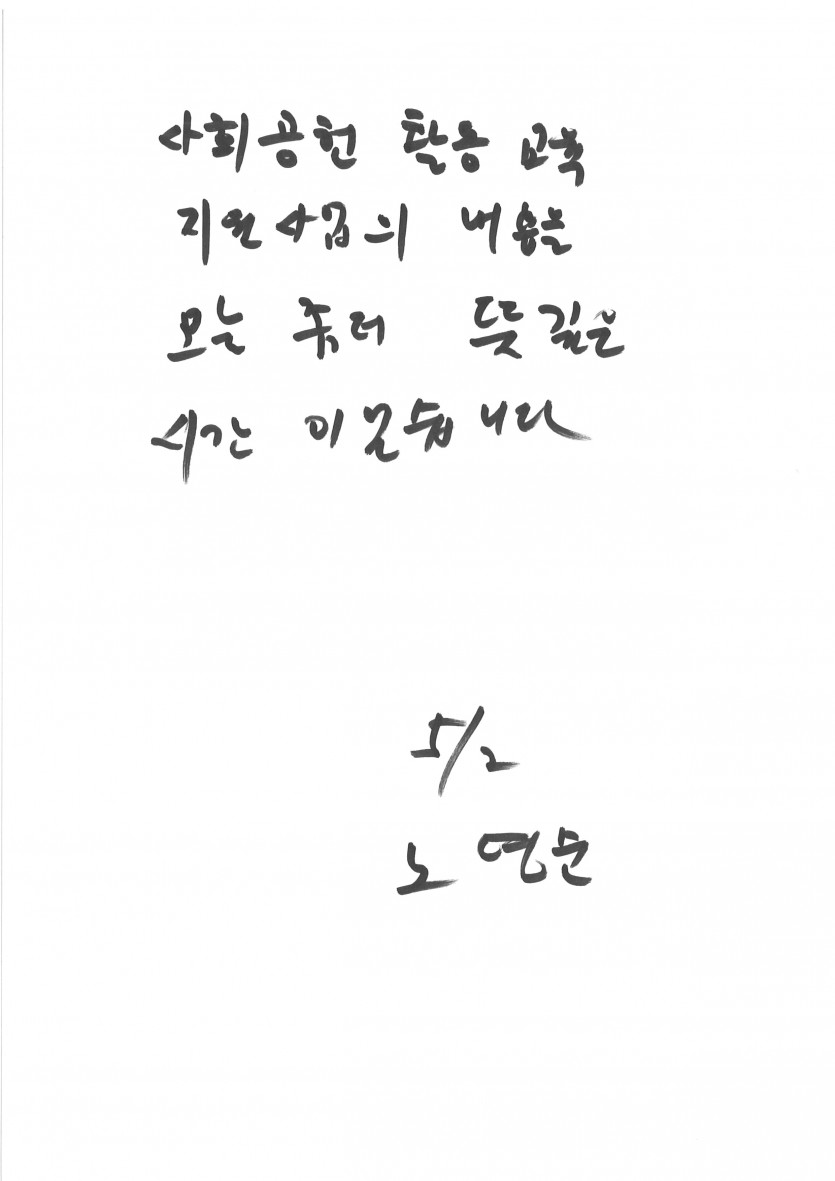 사회공헌 활동 교육
지원사업의 내용을
오늘 죽터 뜻깊은
시간 이였습니다
5/2
노 연순